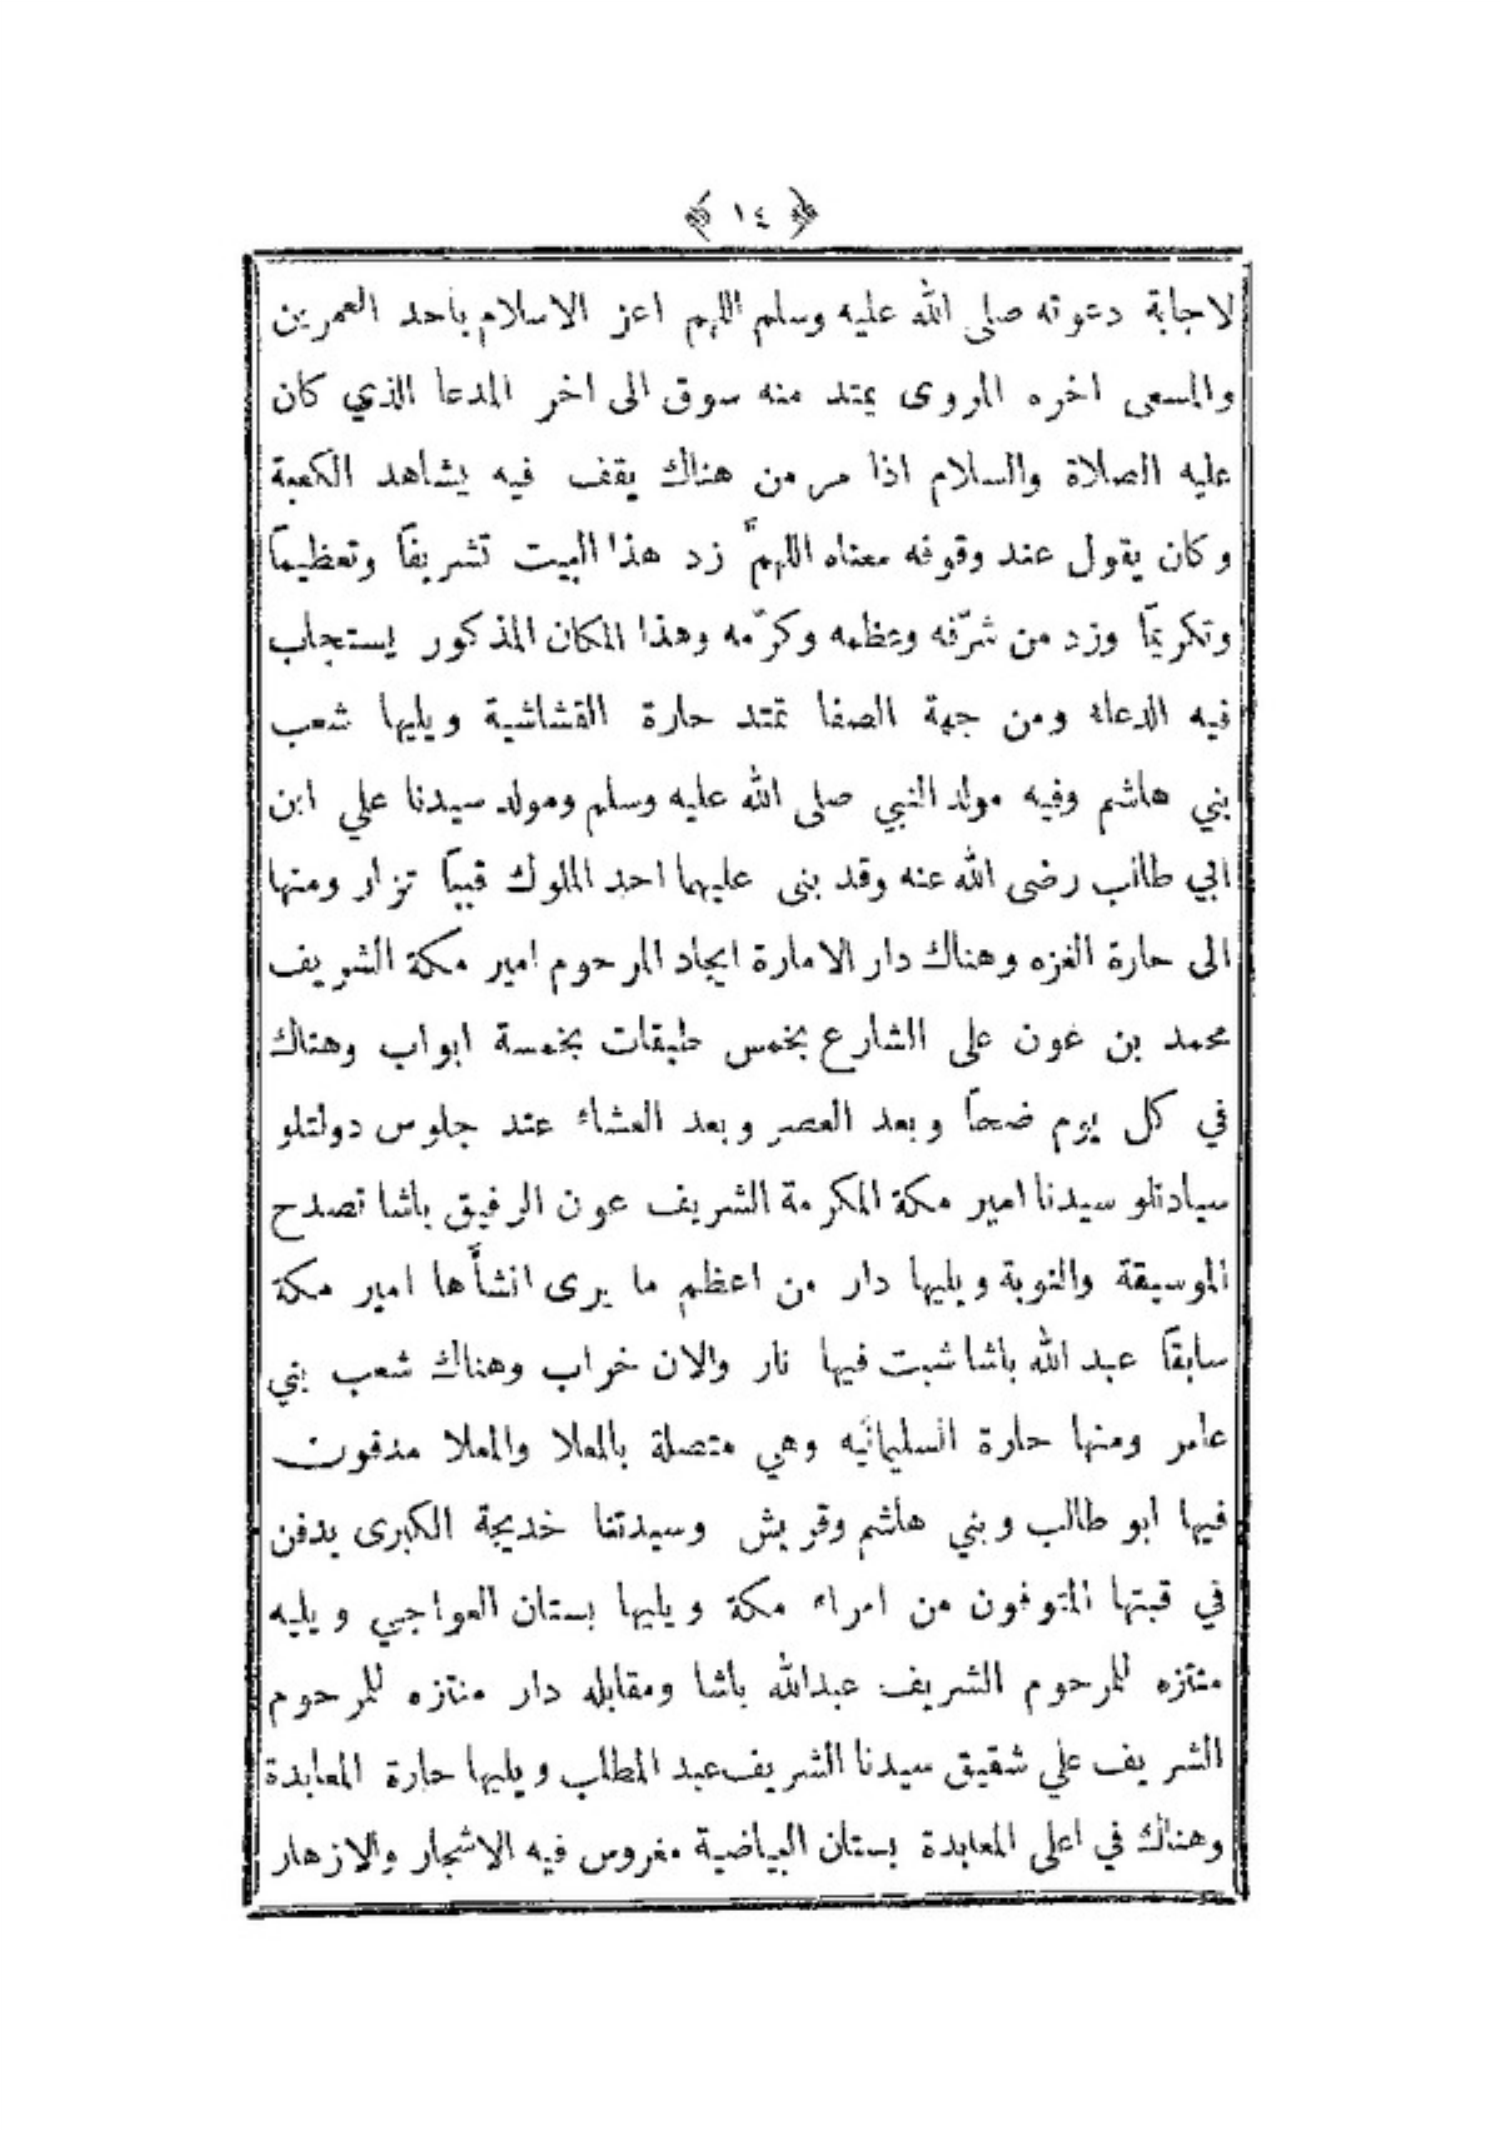 ﴿ ١٤ ﴾
لاجابة دعوته صلى الله عليه وسلم اللهم اعز الاسلام باحد العمرين
والمسعى اخره المروى يمتد منه سوق الى اخر المدعا الذي كان
عليه الصلاة والسلام اذا مر من هناك يقف فيه يشاهد الكعبة
وكان يقول عند وقوفه معناه اللهمَّ زد هذا البيت تشريفاً وتعظيماً
وتكريماً وزد من شرّفه وعظمه وكرّمه وهذا المكان المذكور يستجاب
فيه الدعاء ومن جهة الصفا تمتد حارة القشاشية ويليها شعب
بني هاشم وفيه مولد النبي صلى الله عليه وسلم ومولد سيدنا علي ابن
ابي طالب رضى الله عنه وقد بنى عليهما احد الملوك قبباً تزار ومنها
الى حارة الغزه وهناك دار الامارة ايجاد المرحوم امير مكة الشريف
محمد بن عون على الشارع بخمس طبقات بخمسة ابواب وهناك
في كل يوم ضحاً وبعد العصر وبعد العشاء عند جلوس دولتلو
سيادتلو سيدنا امير مكة المكرمة الشريف عون الرفيق باشا تصدح
الموسيقة والنوبة ويليها دار من اعظم ما يرى انشأها امير مكة
سابقاً عبد الله باشا شبت فيها نار والان خراب وهناك شعب بني
عامر ومنها حارة السليمانيه وهي متصلة بالمعلا والمعلا مدفون
فيها ابو طالب وبني هاشم وقريش وسيدتنا خديجة الكبرى يدفن
في قبتها المتوفون من امراء مكة ويليها بستان العواجي ويليه
منتزه للمرحوم الشريف عبدالله باشا ومقابله دار منتزه للمرحوم
الشريف علي شقيق سيدنا الشريف عبد المطلب ويليها حارة المعابدة
وهناك في اعلى المعابدة بستان البياضية مغروس فيه الاشجار والازهار